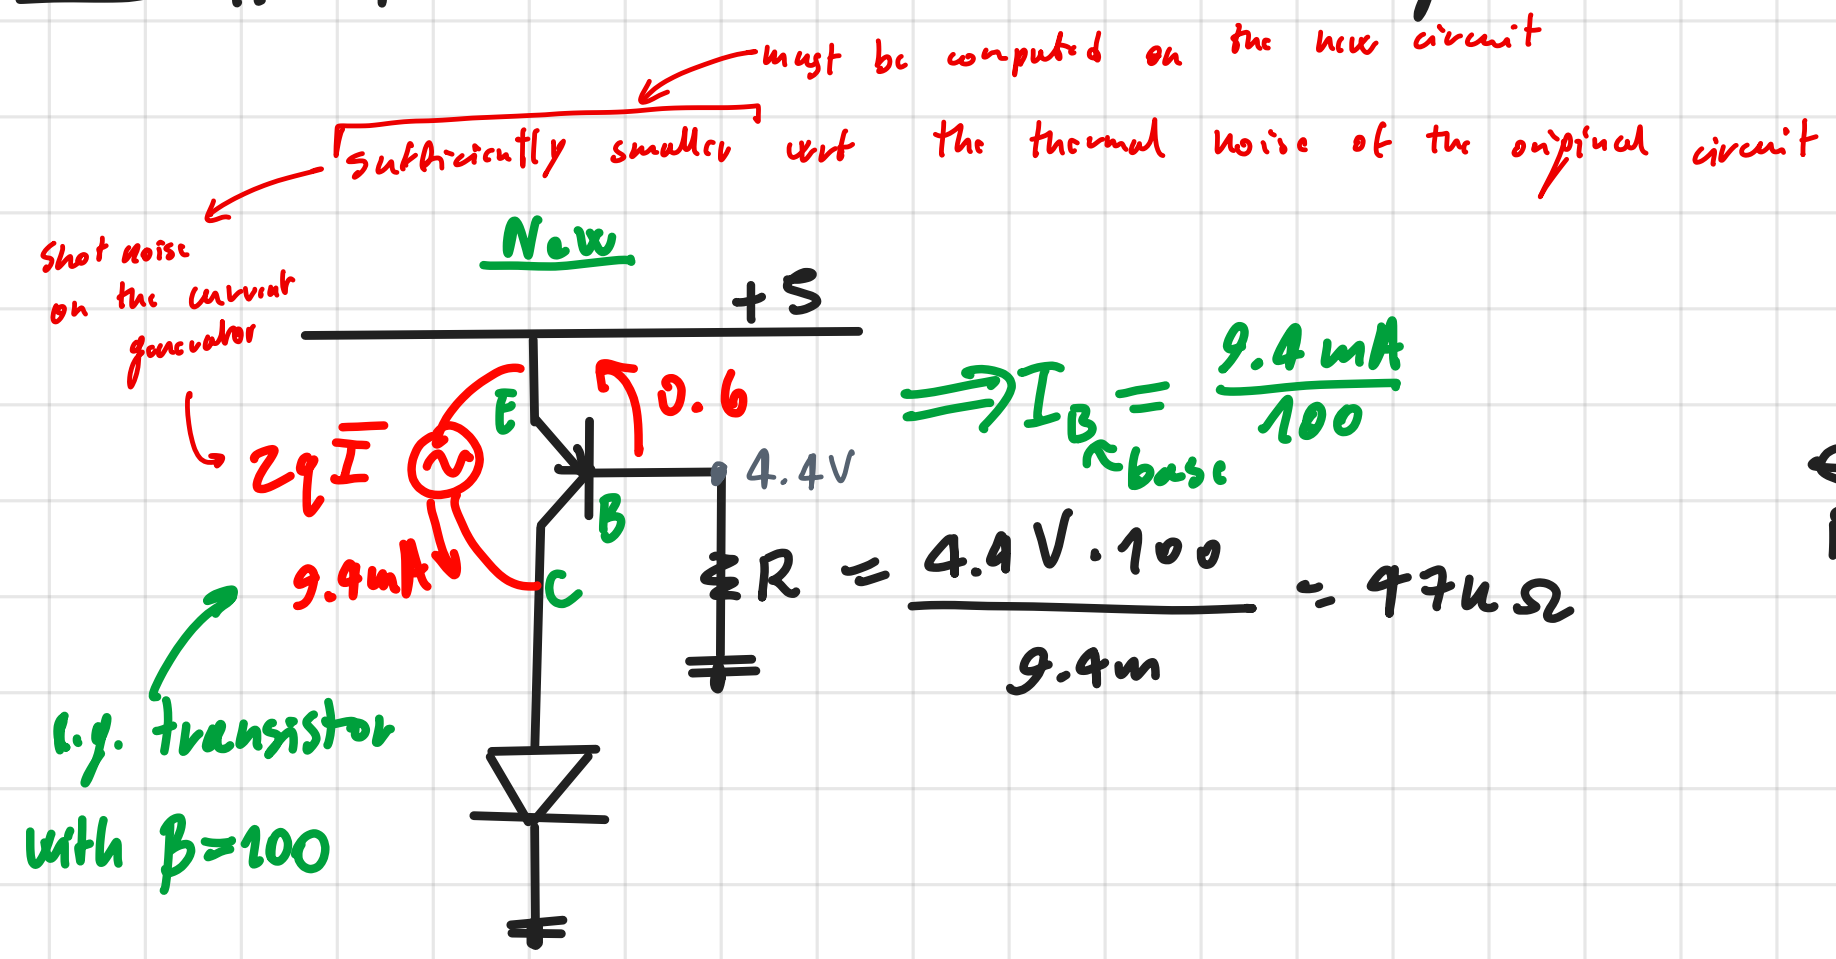 must be computed on the new circuit
sufficiently smaller wrt the thermal noise of the original circuit
shot noise
on the current
generator
New
+5
E
0.6
B
4.4V
C
2qI̅
9.4mA
⟹ I_B = 9.4mA / 100
base
R = 4.4V·100 / 9.4m = 47kΩ
e.g. transistor
with β=100